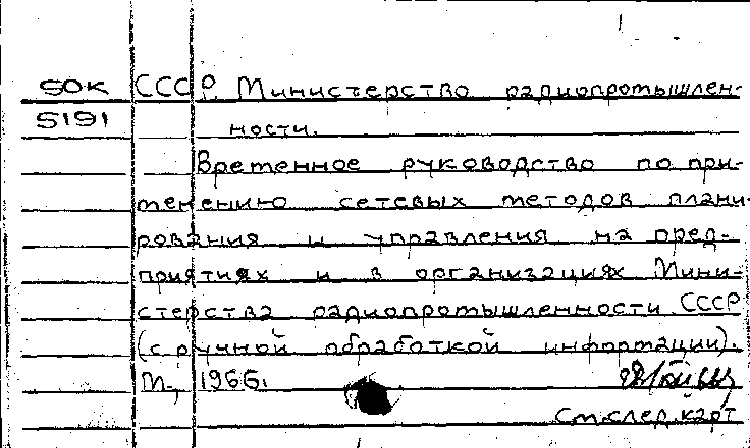 50к СССР. Министерство радиопромышлен-
5191 ности.
Временное руководство по при-
менению сетевых методов плани-
рования и управления на пред-
приятиях и в организациях Мини-
стерства радиопромышленности СССР
(с ручной обработкой информации).
М., 1966.
См.след.карт